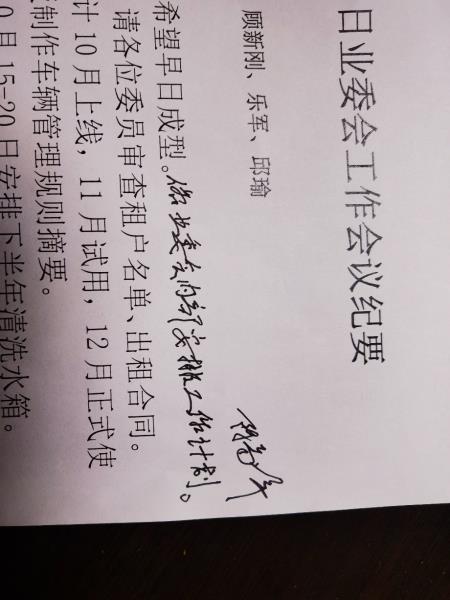 日业委会工作会议纪要
顾新刚、乐军、邱瑜
希望早日成型。做业委会内部安排工作计划。
请各位委员审查租户名单、出租合同。
计10月上线，11月试用，12月正式使
制作车辆管理规则摘要。
0月15-20日安排下半年清洗水箱。